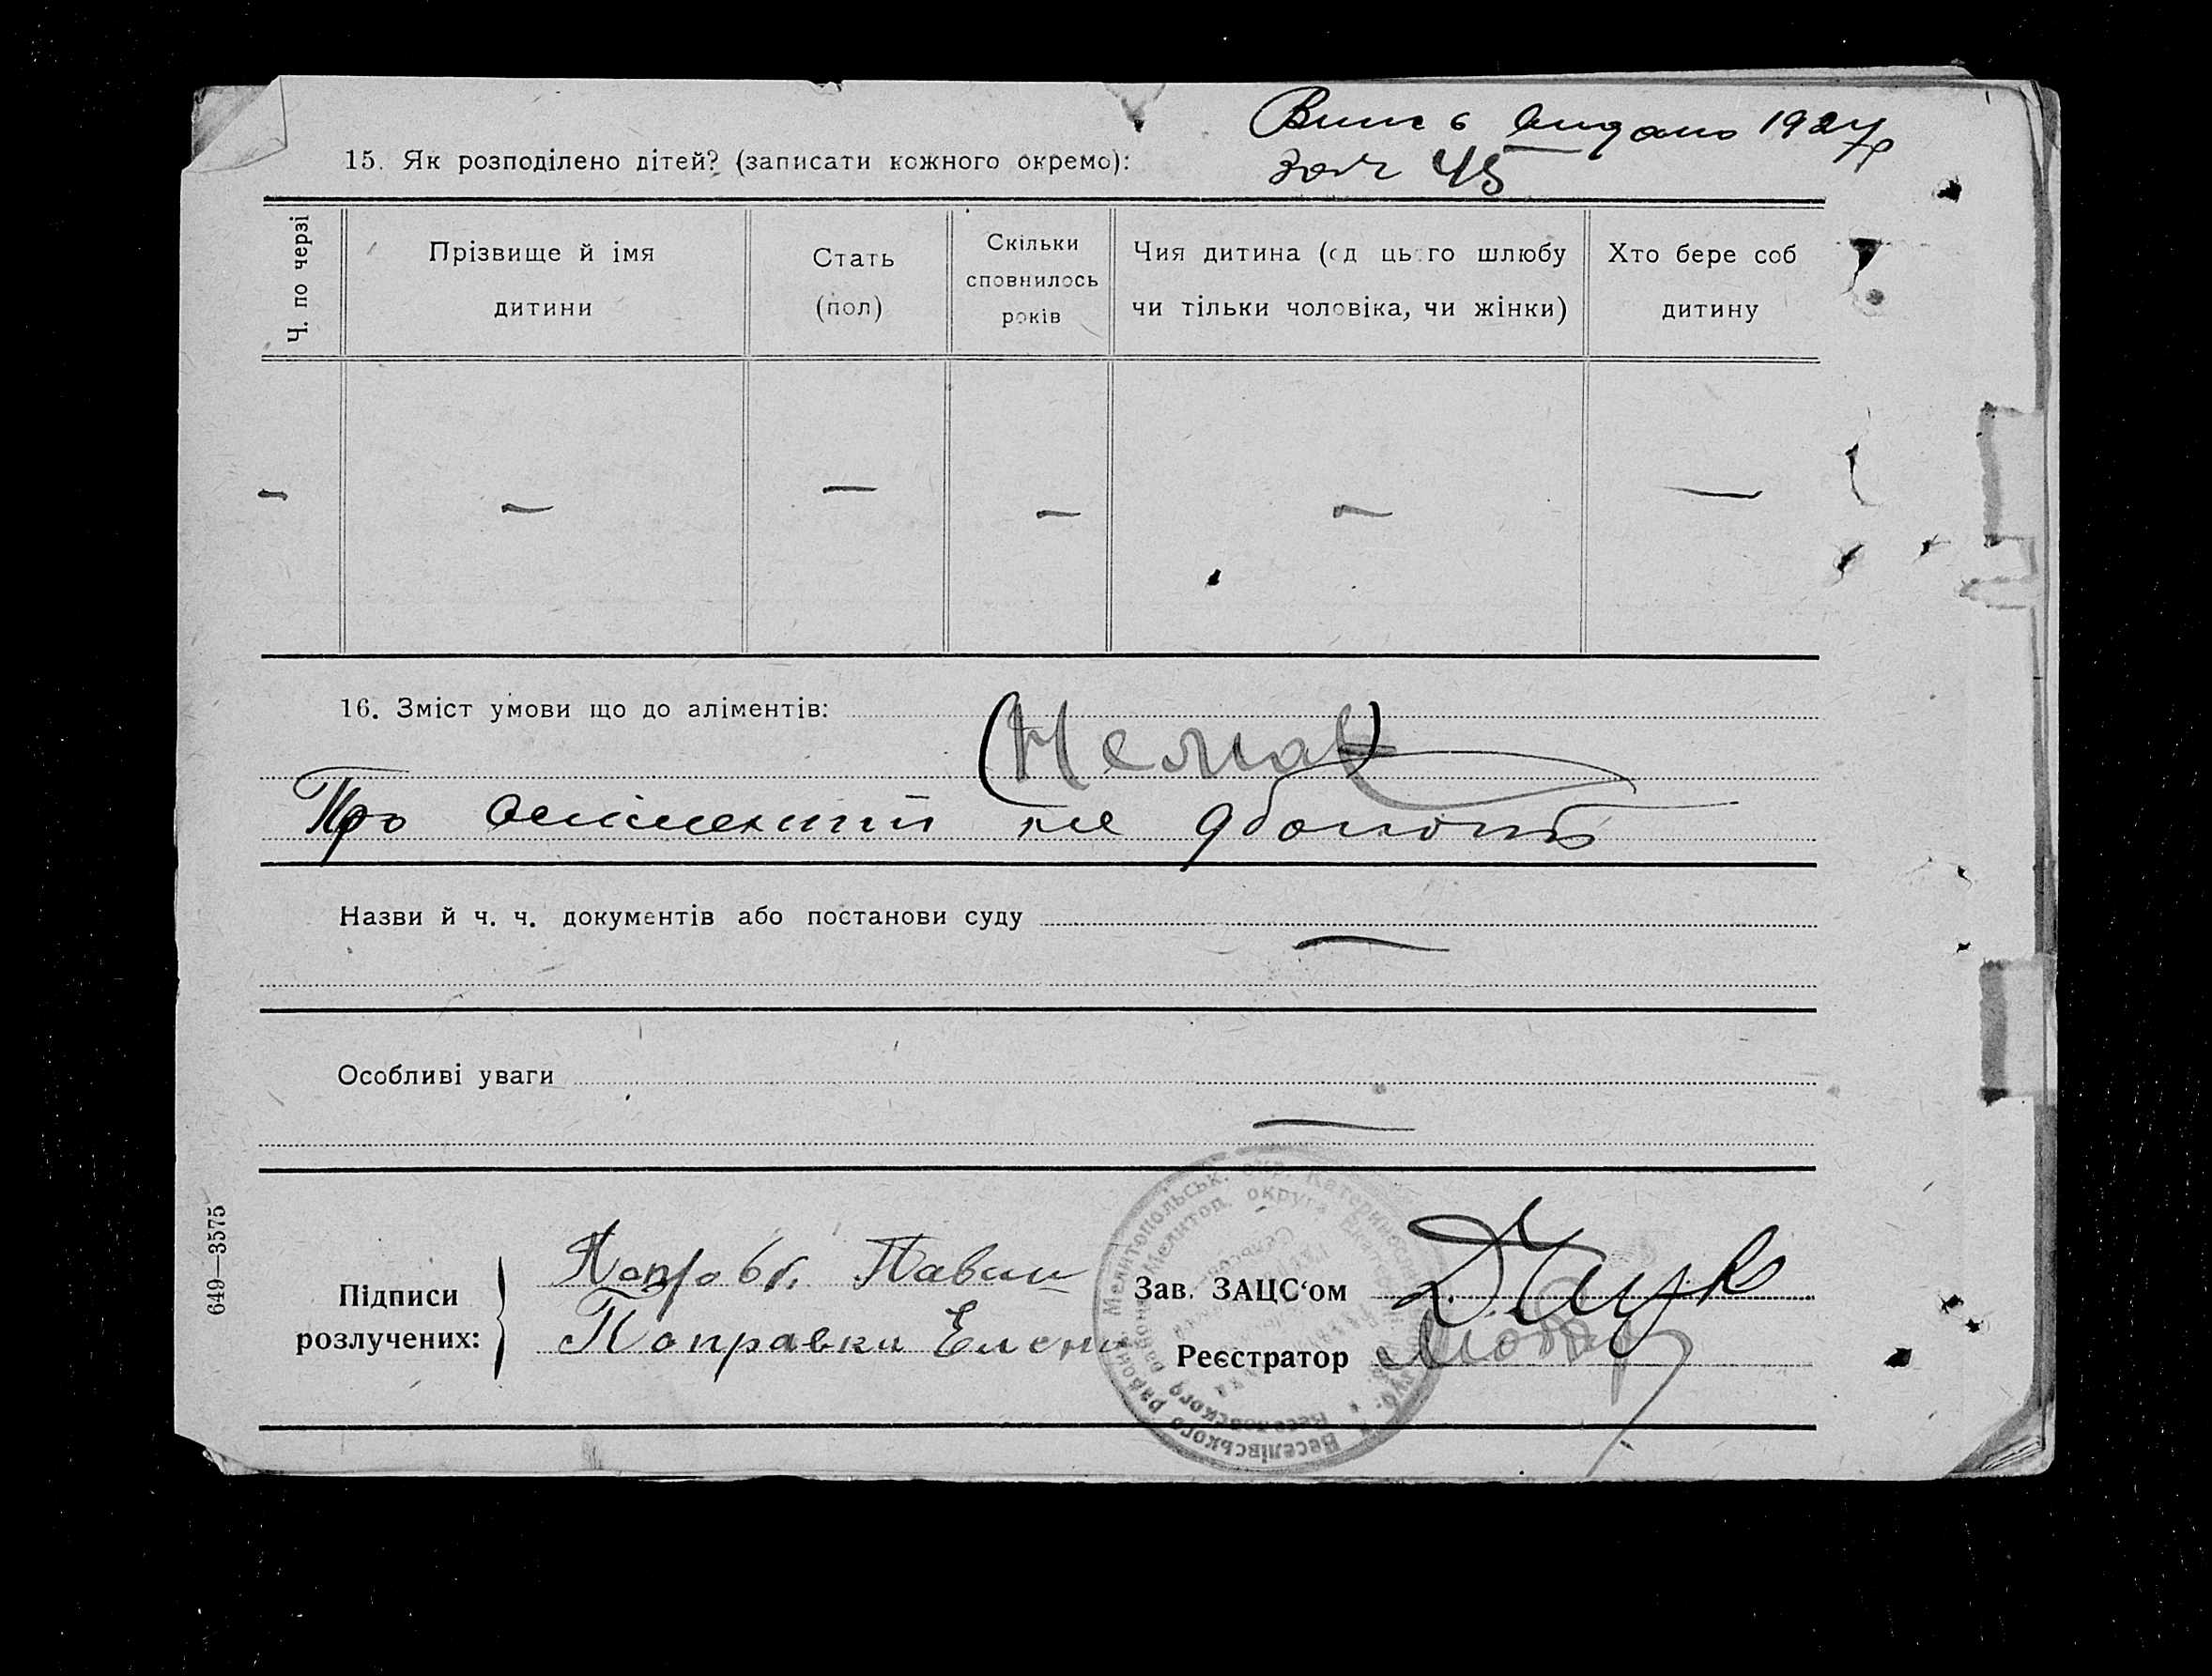 Випис видано 1927р
15. Як розподілено дітей? (записати кожного окремо):
45
Ч. по черзі
Прізвище й імя
дитини
Стать
(пол)
Скільки
сповнилось
років
Чия дитина (од цього шлюбу
чи тільки чоловіка, чи жінки)
Хто бере соб
дитину
— — — — — —
16. Зміст умови що до аліментів:
(Немає)
Про алименти не
Назви й ч. ч. документів або постанови суду —
Особливі уваги —
649—3575
Підписи
розлучених:
Павло
Поправки Елена
Зав. ЗАЦС‘ом
Реєстратор
Веселівського району Мелітопольськ. окр. Катеринослав
Веселовского района Мелитоп. округа Екатер